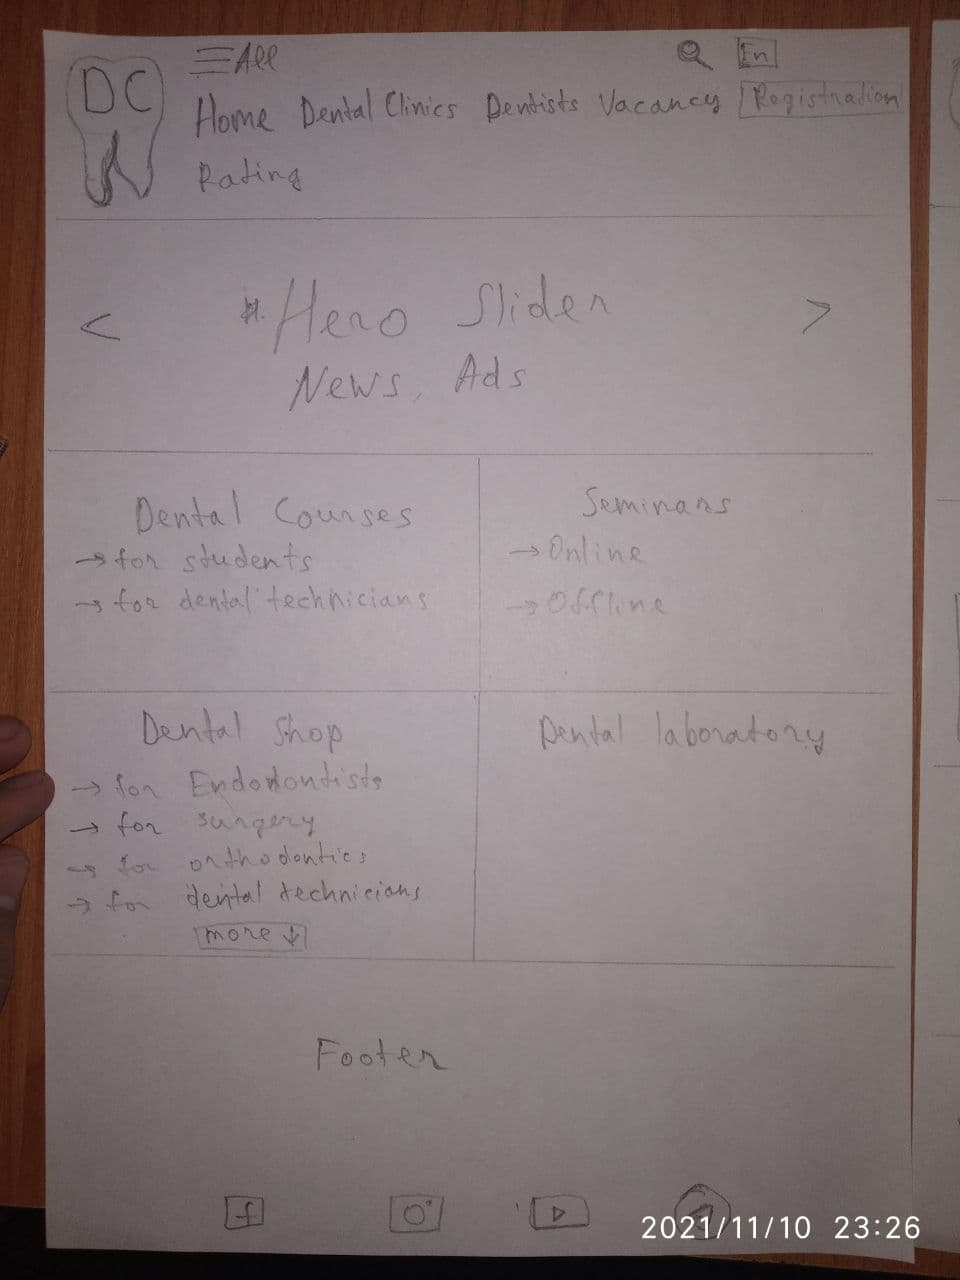 DC
All
En
Home Dental Clinics Dentists Vacancy Registration
Rating
< >
Hero Slider
News, Ads
Dental Courses
→ for students
→ for dental technicians
Seminars
→ Online
→ Offline
Dental Shop
→ for Endodontists
→ for surgery
→ for orthodontics
→ for dental technicians
more ↓
Dental laboratory
Footer
f
2021/11/10 23:26